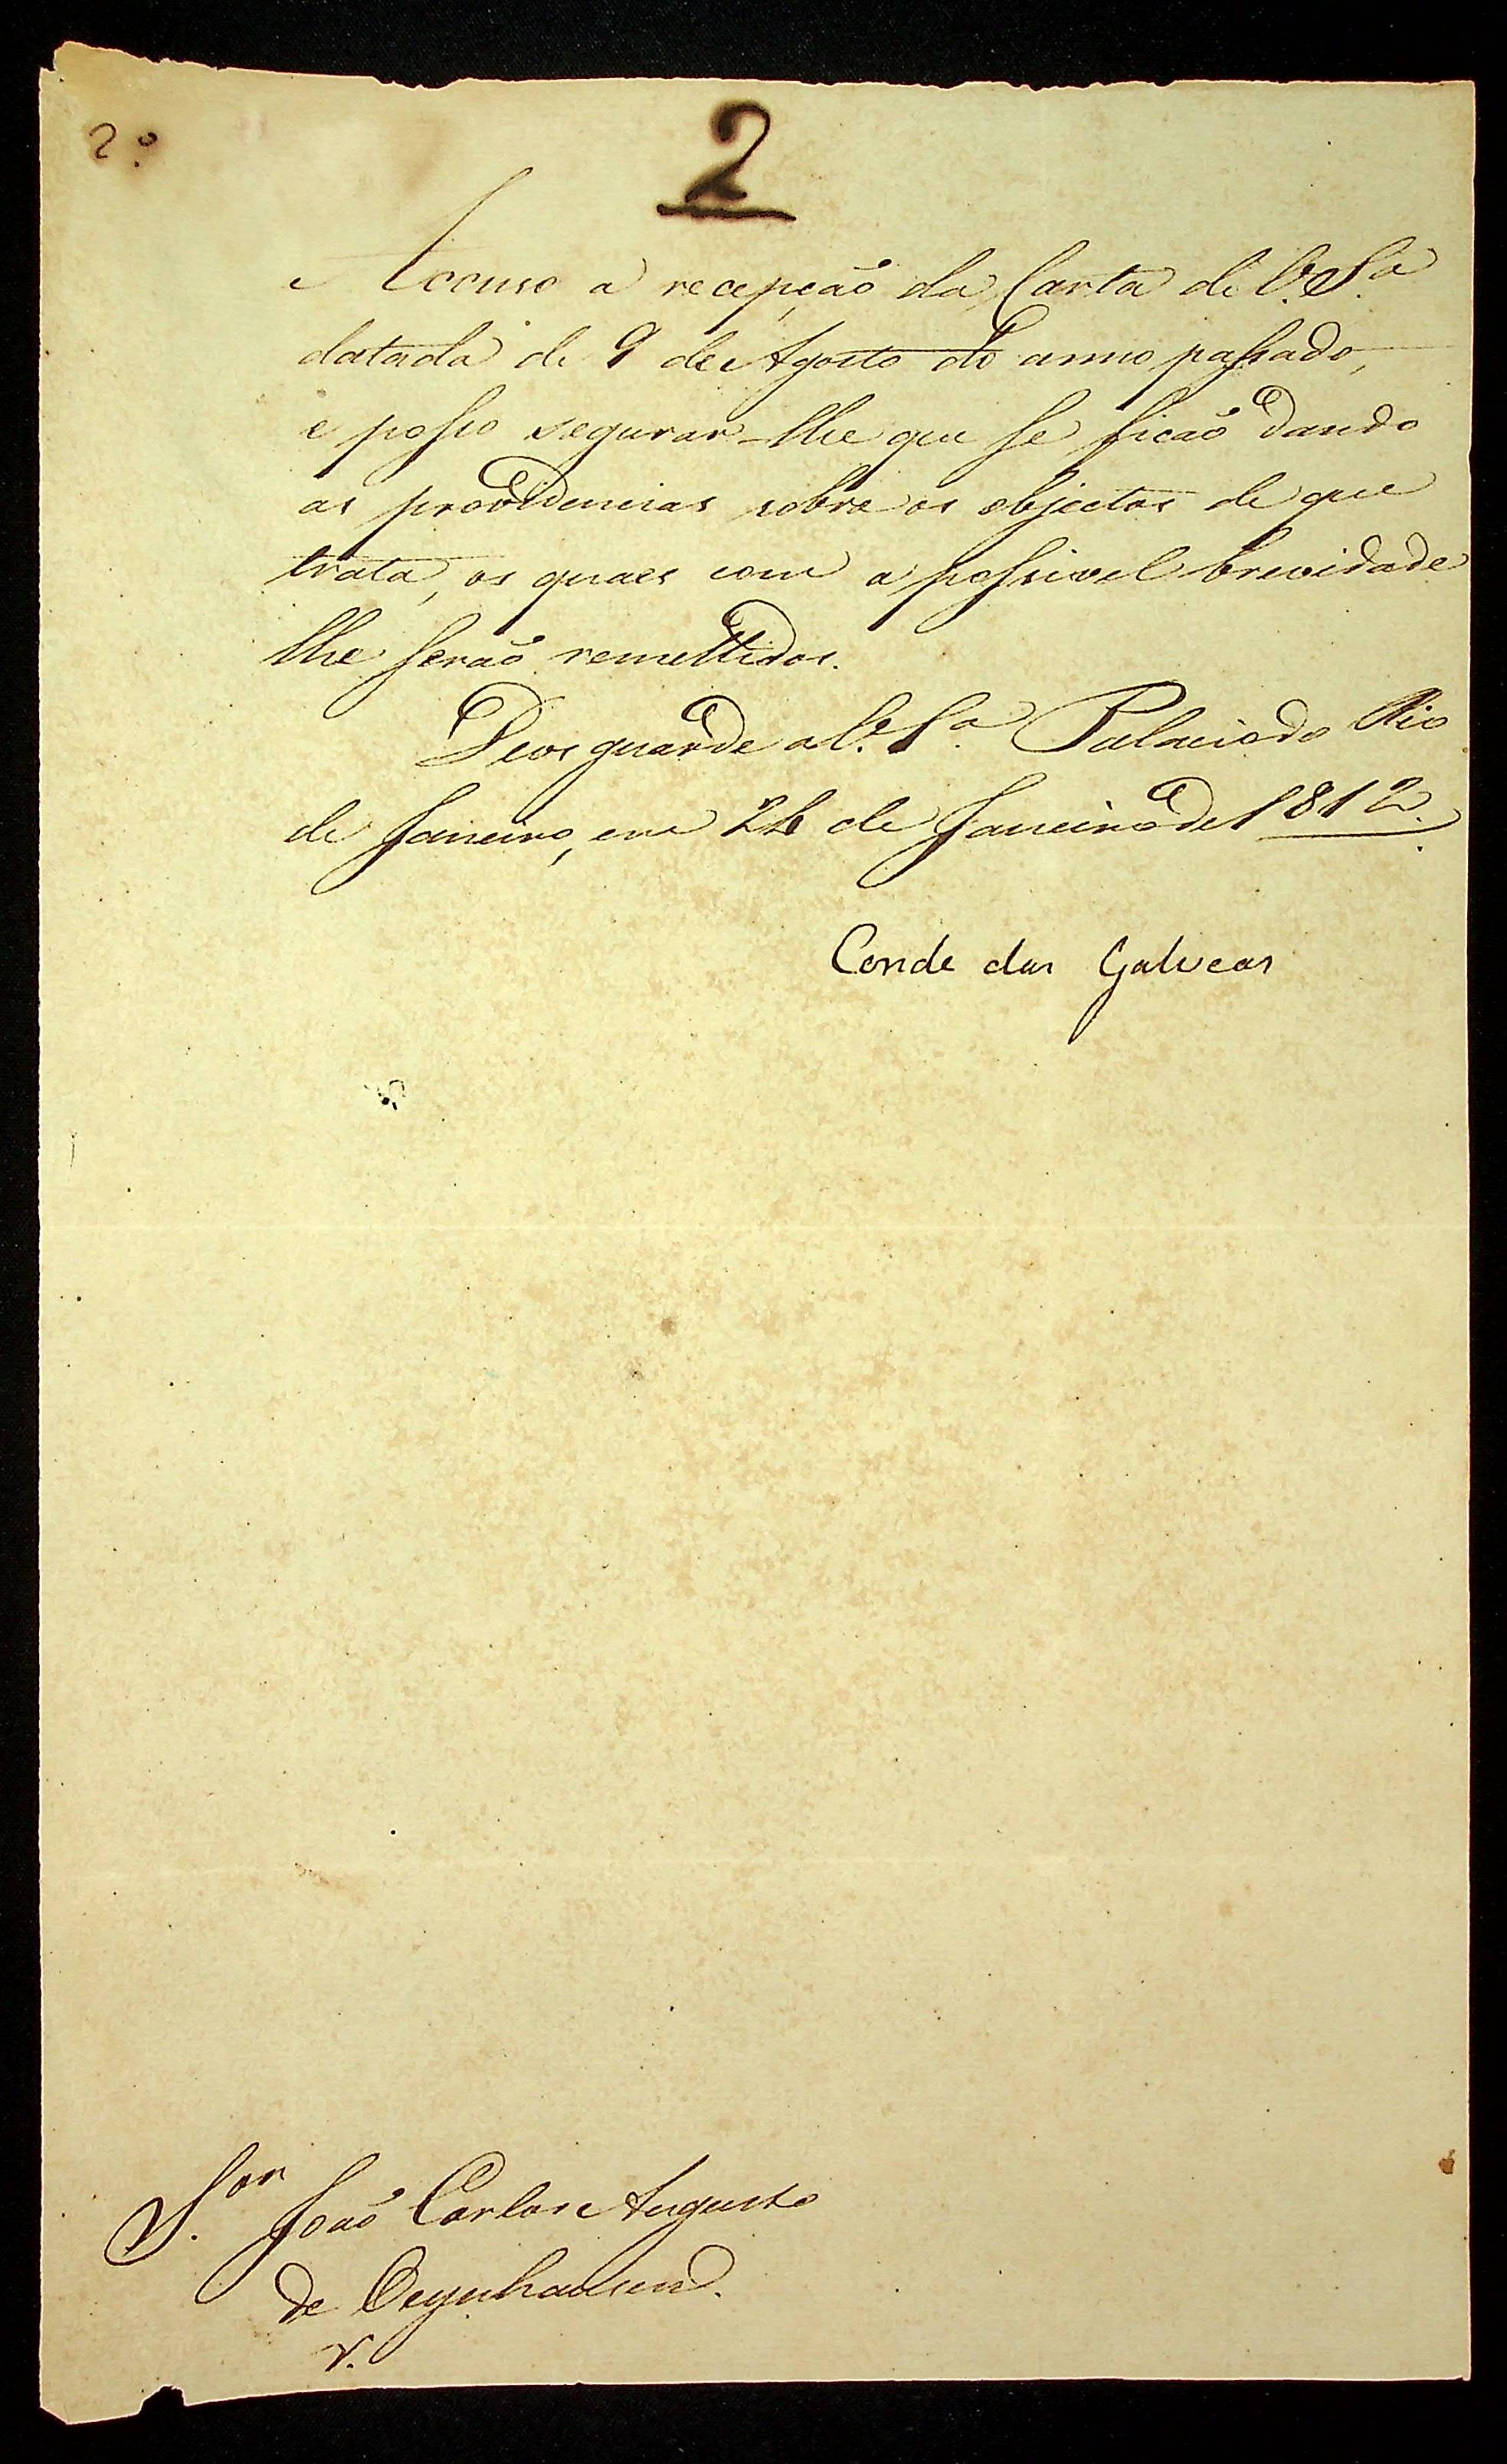 2º
2
Accuso a recepção da Carta de V. Sª
datada de 9 de Agosto do anno passado,
e posso segurar-lhe que se ficaõ dando
as providencias sobre os objectos de que
trata, os quaes com a possivel brevidade
lhe seraõ remettidos.
Deos guarde a V. Sª Palacio do Rio
de Janeiro, em de Janeiro de 1812.
Conde das Galveas
S.or Joaõ Carlos Augusto
de Oeynhausen.